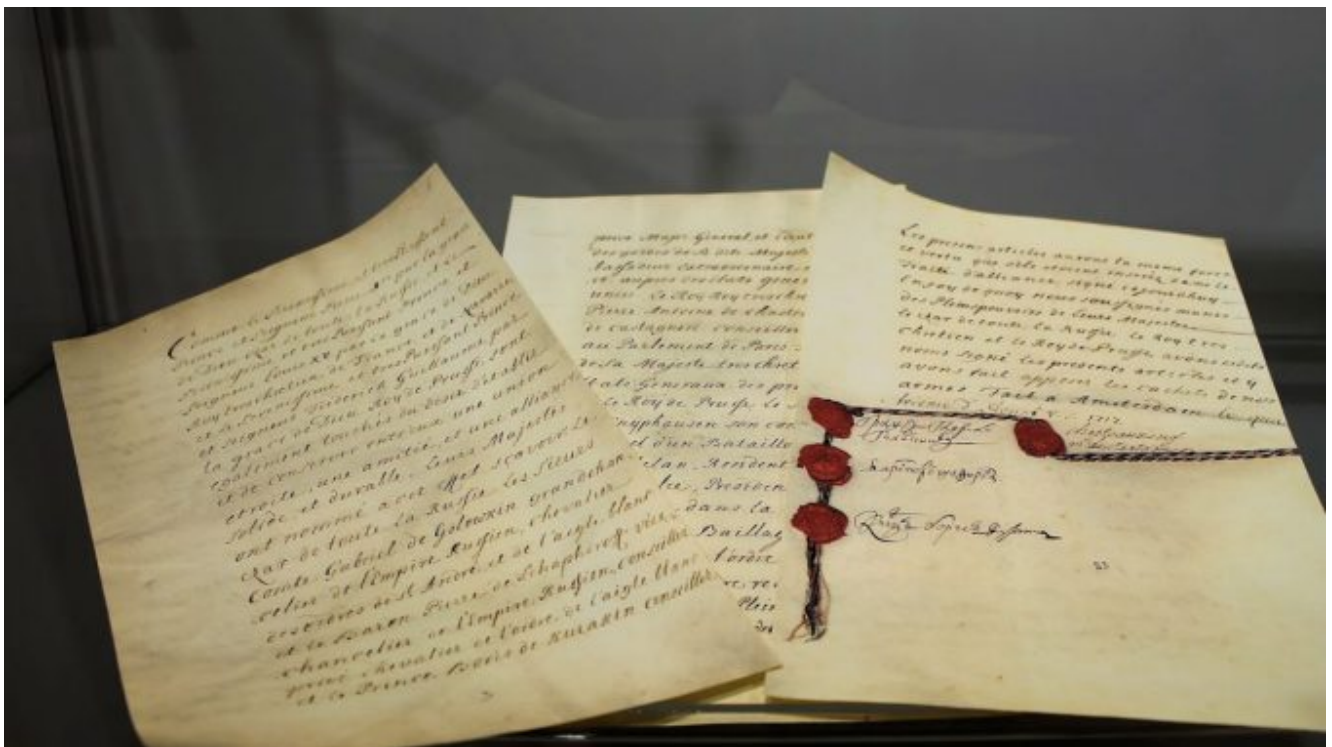 Comme le Serenissime et tres Puissant
Prince et Seigneur Pierre par la grace
de Dieu Czar de toute la Russie, et
Serenissime et tres Puissant Prince, et
Seigneur Louis XV par la grace de Dieu
Roy tres chretien de France et de Navarre,
et le Serenissime, et tres Puissant Prince,
et Seigneur Frideric Guillaume, par
la grace de Dieu Roy de Prusse, sont
egalement touchés du desir d'établir
et de conserver entreux une union
etroite, une amitié, et une alliance
solide et durable, Leurs Majestés
ont nommé a cet effet sçavoir Le
Czar de toute la Russie Les Sieurs
Comte Gabriel de Golowkin grand chan
celier de l'Empire Russien, chevalier
des ordres de St André, et de l'aigle blanc
et le Baron Pierre de Schaphiroff, vice
chancelier de l'Empire Russien, conseiller
privé chevalier de l'ordre de l'aigle blanc
et le Prince Boris de Kurakin conseiller
3
privé Major General et Lieut
des gardes de Sa dite Majesté
Ambassadeur extraordinaire
et aupres des Etats gener
unies. Le Roy tres chr
Pierre Antoine de Chastea
de Castagnere conseiller
au Parlement de Paris
de Sa Majesté tres chret
Etats Generaux des pro
Le Roy de Prusse Le S
nyphausen son con
et d'un Bataillo
clan, Resident
Presiden
dans la
Baillag
l'ordre
re, re
Plein
des
Les presens articles auront la meme force
et vertu que s'ils etoient inserés dans le
traité d'alliance signé cejourdhuy
en foy de quoy nous soussignés munis
des Pleinpouvoirs de Leurs Majestés
le Czar de toute la Russie le Roy tres
chretien et le Roy de Prusse avons
noms signé les presents articles et y
avons fait apposer les cachets de nos
armes. Fait a Amsterdam le
1717
23